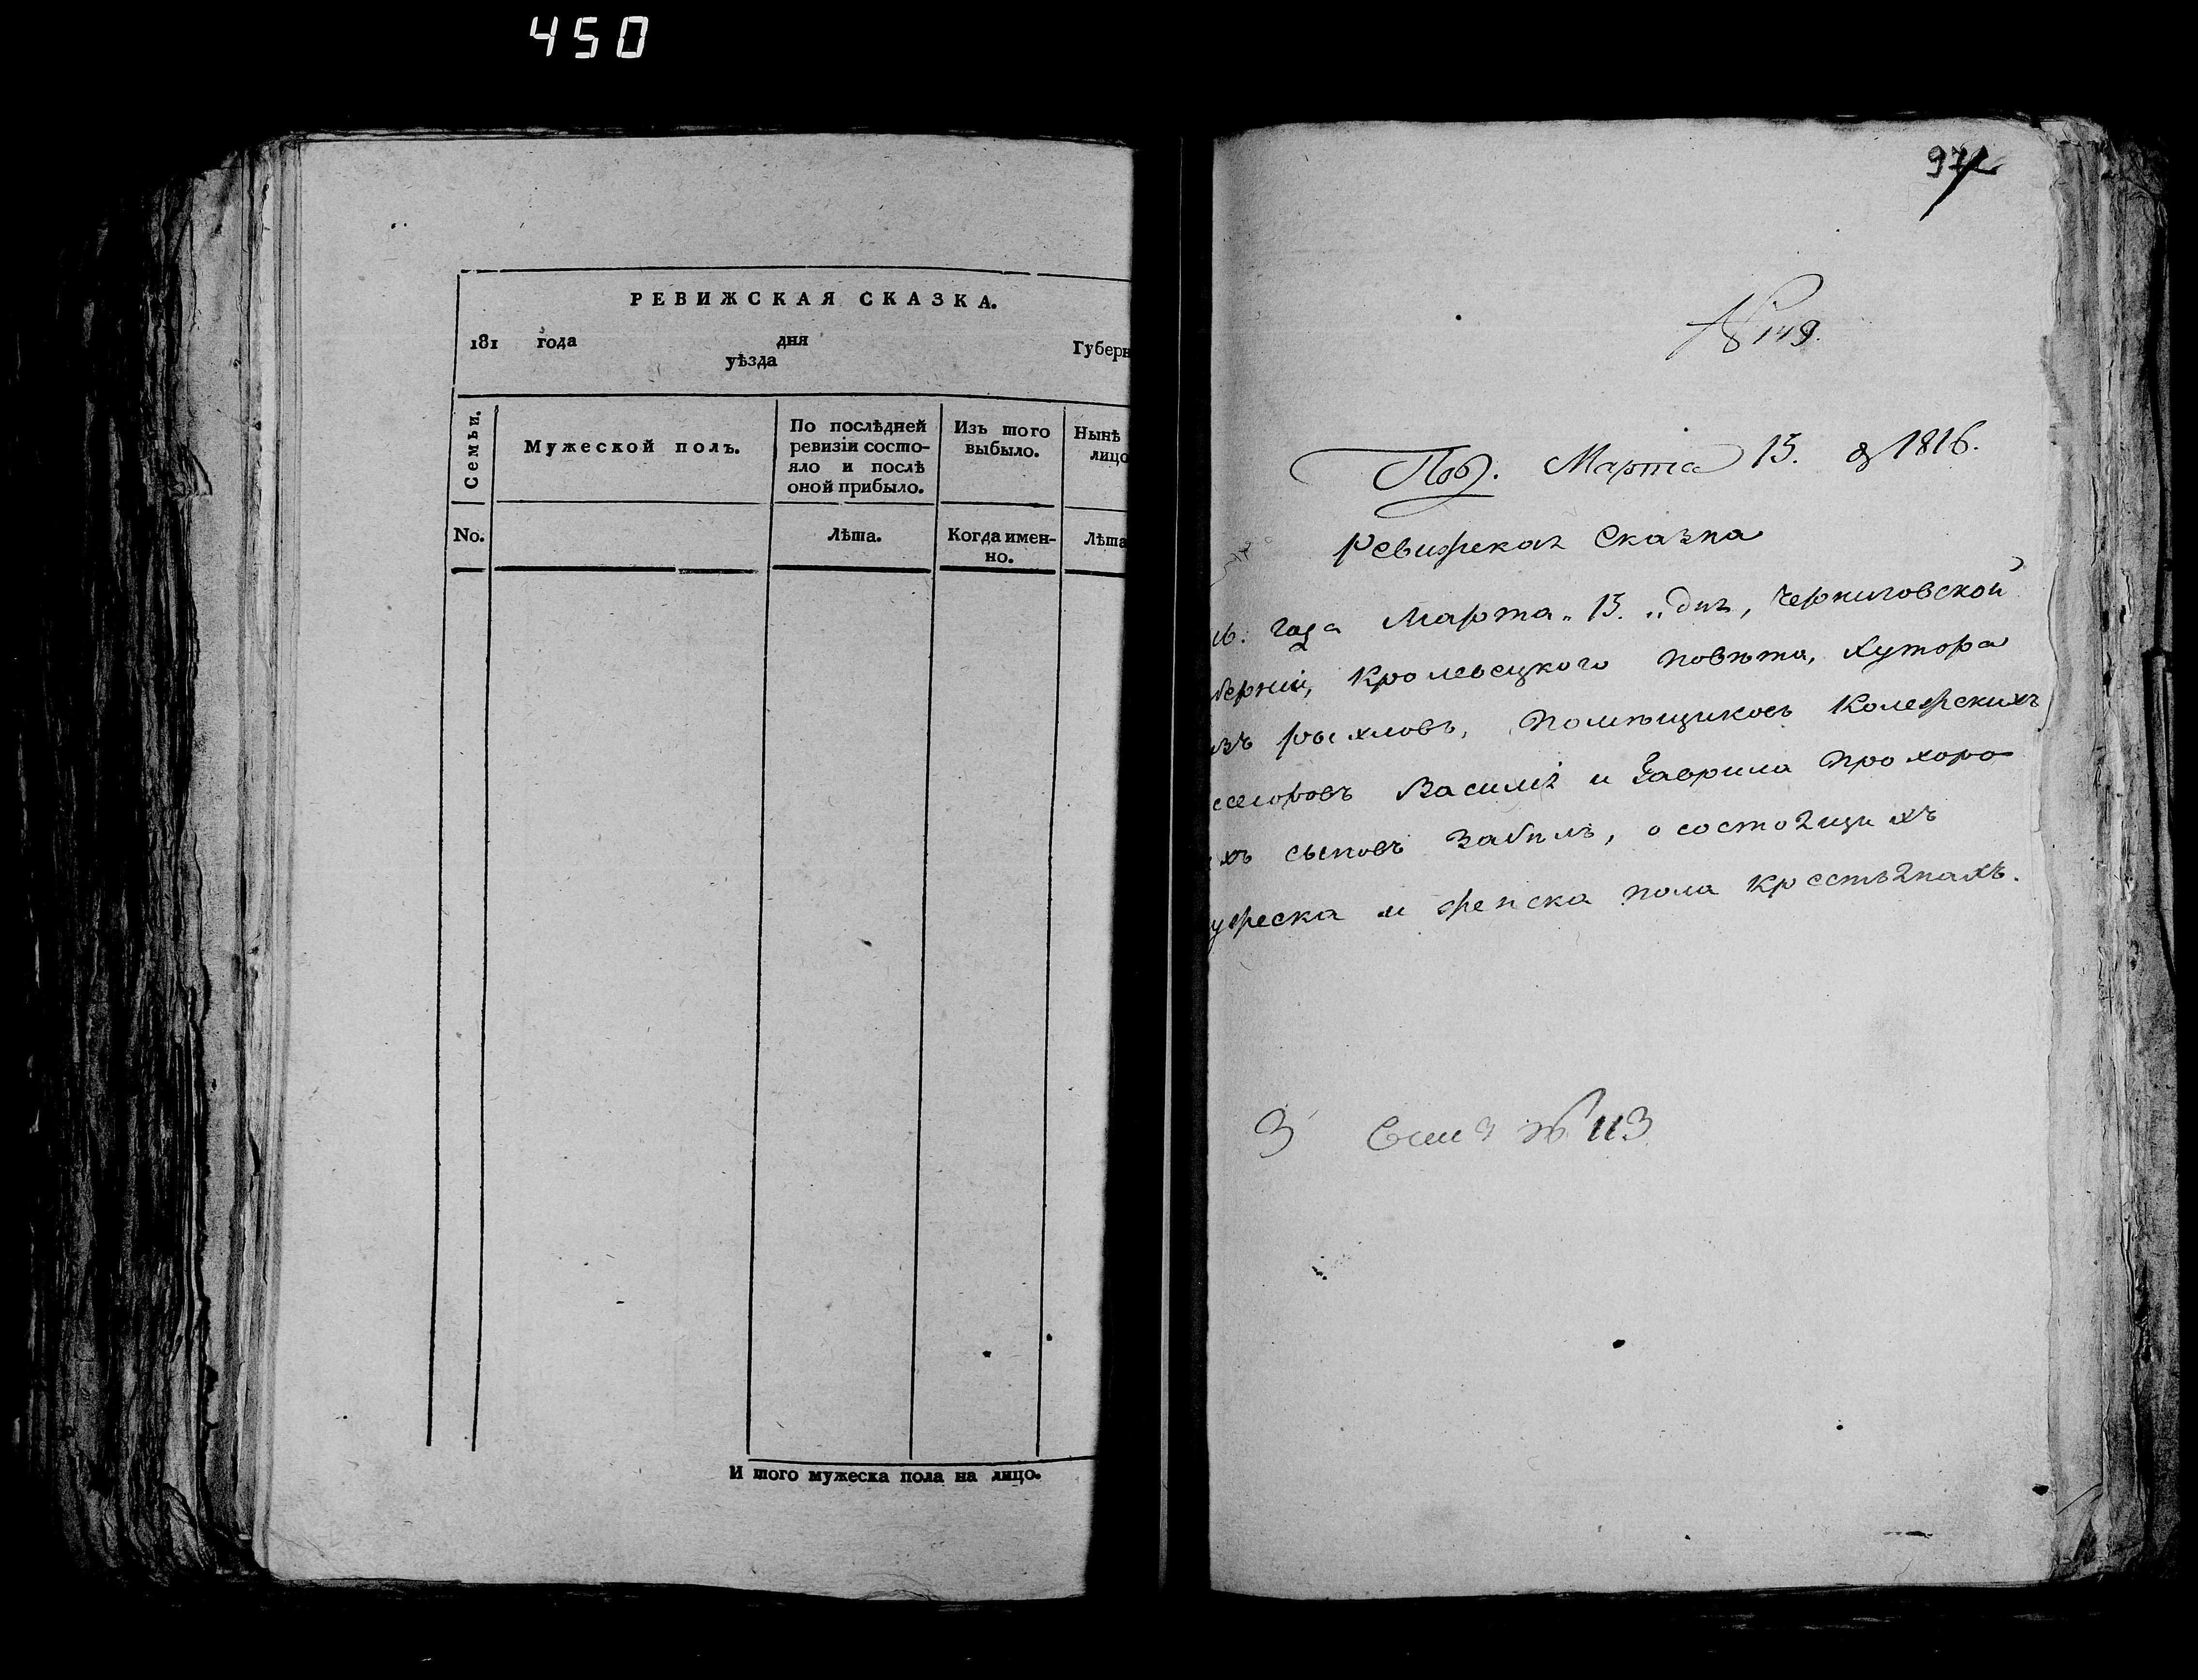 450
РЕВИЖСКАЯ СКАЗКА.
181 года дня
уѣзда
Губерн
Семьи.
Мужеской полъ.
По послѣдней
ревизіи состо-
яло и послѣ
оной прибыло.
Изъ того
выбыло.
Нынѣ
лицо
No.
Лѣта.
Когда имен-
но.
Лѣта
И того мужеска пола на лицо.
97
№ 149.
Под. Марта 15. 1816.
Ревижская Сказка
16. года Марта 15 дня, Черниговской
берніи, Кролевецкого повѣта, хутора
Рыхловъ, помѣщиковъ Колежскихъ
ссесоровъ Василія и Гаврила Прохоро
хъ сыновъ Забѣлъ, о состоящихъ
ужеска и женска пола крестьянахъ.
3 № 113